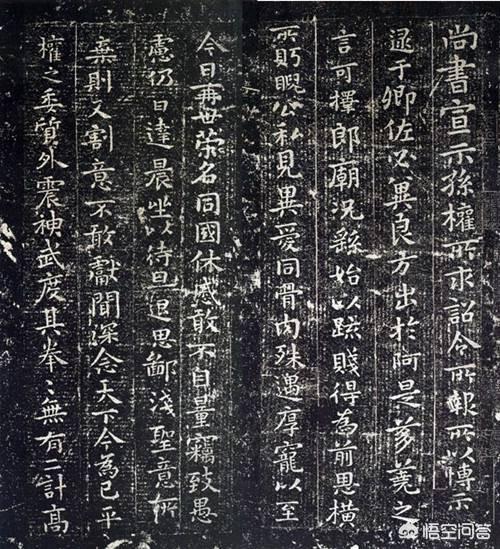 尚書宣示孫權所求詔令所報所以博示
逮于卿佐必異良方出於阿是芻蕘之
言可擇郎廟況繇始以疏賤得為前恩橫
所眄睨公私見異愛同骨肉殊遇厚寵以至
今日再世榮名同國休慼敢不自量竊致愚
慮仍日達晨坐以待旦退思鄙淺聖意所
棄則又割意不敢獻聞深念天下今為已平
權之委質外震神武度其拳〻無有二計高
悟空问答